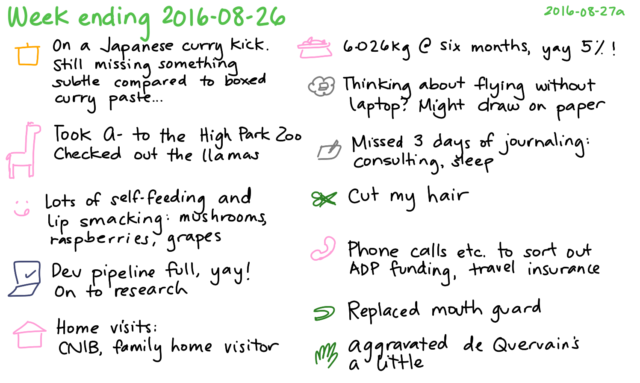 Week ending 2016-08-26
2016-08-27a
On a Japanese curry kick.
Still missing something
subtle compared to boxed
curry paste...
Took A- to the High Park Zoo
Checked out the llamas
Lots of self-feeding and
lip smacking: mushrooms,
raspberries, grapes
Dev pipeline full, yay!
On to research
Home visits:
CNIB, family home visitor
6.026kg @ six months, yay 5%!
Thinking about flying without
laptop? Might draw on paper
Missed 3 days of journaling:
consulting, sleep
Cut my hair
Phone calls etc. to sort out
ADP funding, travel insurance
Replaced mouth guard
aggravated de Quervain's
a little